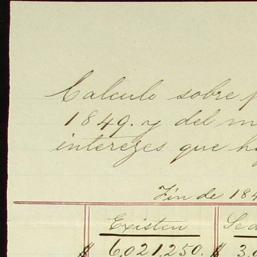 Calculo sobre
1849. y del
interezes que
Fin de 184
Existen
$ 6,021,250. $ 3,